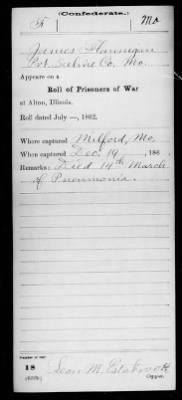 (Confederate.)
F | Mo
James Flannigan
Pvt. Co. Mo.
Appears on a
Roll of Prisoners of War
at Alton, Illinois.
Roll dated July —, 1862.
Where captured Milford, Mo.
When captured Dec. 19, 186
Remarks: Died 14th March
of Pneumonia.
Number of roll:
18
Leon M. Estabrook
Copyist.